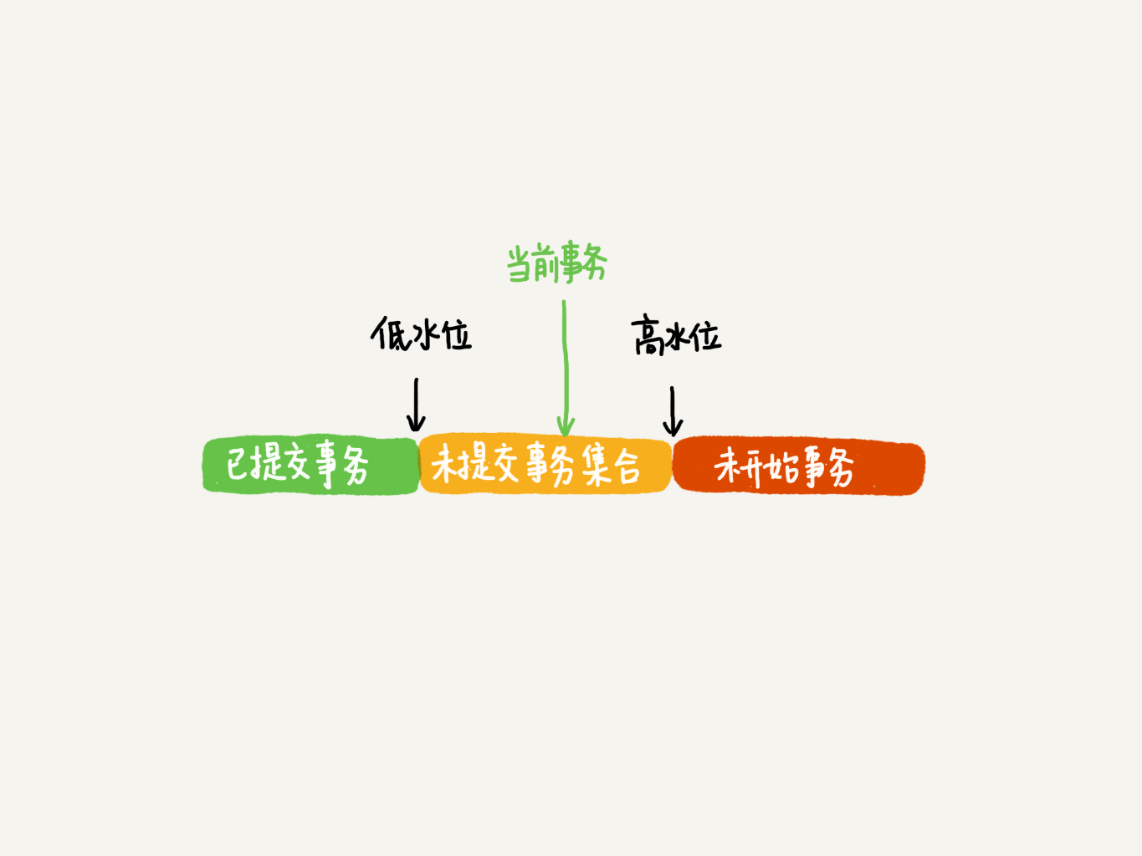 当前事务
低水位
高水位
已提交事务
未提交事务集合
未开始事务